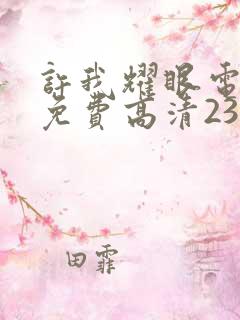 許我耀眼電
免費高清23
田霏